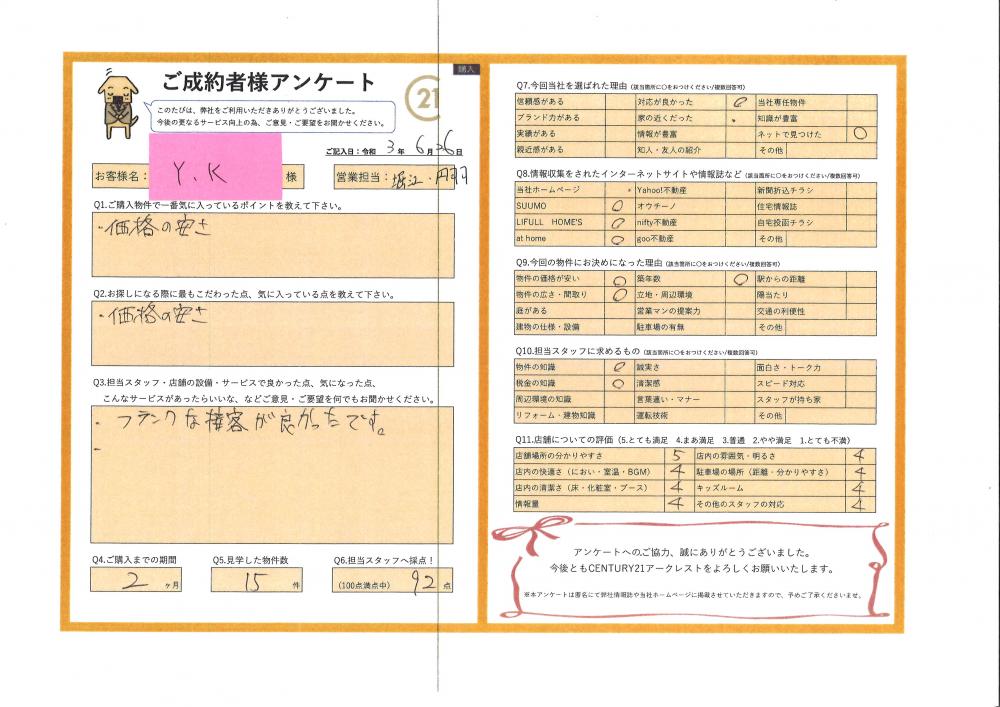 購入
ご成約者様アンケート
21
このたびは、弊社をご利用いただきありがとうございました。
今後の更なるサービス向上の為、ご意見・ご要望をお聞かせください。
ご記入日：令和 3 年 6 月 26 日
お客様名： Y.K 様
営業担当：堀江・円羽
Q1.ご購入物件で一番気に入っているポイントを教えて下さい。
・価格の安さ
Q2.お探しになる際に最もこだわった点、気に入っている点を教えて下さい。
・価格の安さ
Q3.担当スタッフ・店舗の設備・サービスで良かった点、気になった点、
こんなサービスがあったらいいな、などご意見・ご要望を何でもお聞かせください。
・フランクな接客が良かったです。
Q4.ご購入までの期間
2 ヶ月
Q5.見学した物件数
15 件
Q6.担当スタッフへ採点！
(100点満点中) 92 点
Q7.今回当社を選ばれた理由 (該当箇所に○をおつけください/複数回答可)
信頼感がある 対応が良かった ○ 当社専任物件
ブランド力がある 家の近くだった 知識が豊富
実績がある 情報が豊富 ネットで見つけた ○
親近感がある 知人・友人の紹介 その他
Q8.情報収集をされたインターネットサイトや情報誌など (該当箇所に○をおつけください/複数回答可)
当社ホームページ Yahoo!不動産 新聞折込チラシ
SUUMO ○ オウチーノ 住宅情報誌
LIFULL HOME'S ○ nifty不動産 自宅投函チラシ
at home ○ goo不動産 その他
Q9.今回の物件にお決めになった理由 (該当箇所に○をおつけください/複数回答可)
物件の価格が安い ○ 築年数 ○ 駅からの距離
物件の広さ・間取り ○ 立地・周辺環境 陽当たり
庭がある 営業マンの提案力 交通の利便性
建物の仕様・設備 駐車場の有無 その他
Q10.担当スタッフに求めるもの (該当箇所に○をおつけください/複数回答可)
物件の知識 ○ 誠実さ 面白さ・トーク力
税金の知識 ○ 清潔感 スピード対応
周辺環境の知識 言葉遣い・マナー スタッフが持ち家
リフォーム・建物知識 運転技術 その他
Q11.店舗についての評価 (5.とても満足 4.まあ満足 3.普通 2.やや満足 1.とても不満)
店舗場所の分かりやすさ 5 店内の雰囲気・明るさ 4
店内の快適さ（におい・室温・BGM） 4 駐車場の場所（距離・分かりやすさ） 4
店内の清潔さ（床・化粧室・ブース） 4 キッズルーム 4
情報量 4 その他のスタッフの対応 4
アンケートへのご協力、誠にありがとうございました。
今後ともCENTURY21アークレストをよろしくお願いいたします。
※本アンケートは匿名にて弊社情報誌や当社ホームページに掲載させていただきますので、予めご了承くださいませ。